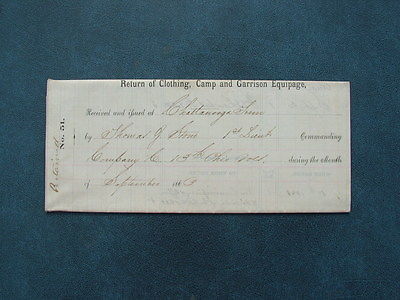 Return of Clothing, Camp and Garrison Equipage,
No. 51.
Received and issued at Chattanooga Tenn
by Thomas J. Stone 1st Lieut Commanding
Company C. 13th Ohio Vols. during the Month
of September 1863